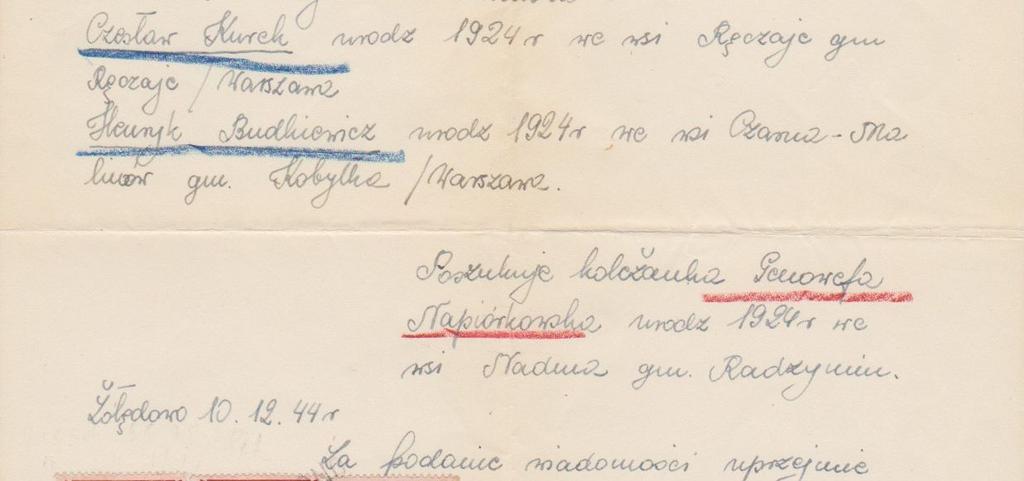 Czesław Kurek urodz 1924 r we wsi Ręczaje gm
Ręczaje / Warszawa
Henryk Budkiewicz urodz 1924 r we wsi Czarna - Ma
linów gm. Kobyłka / Warszawa.
Poszukuje koleżanka Genowefa
Napiórkowska urodz 1924 r we
wsi Nadma gm. Radzymin.
Żołędowo 10. 12. 44 r
Za podanie wiadomości uprzejmie